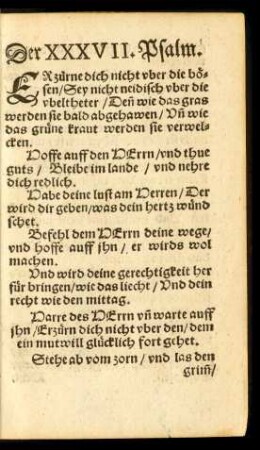 Der XXXVII. Psalm.
ERzürne dich nicht vber die bö-
sen/Sey nicht neidisch vber die
vbeltheter/Deñ wie das gras
werden sie bald abgehawen/Vñ wie
das grüne kraut werden sie verwel-
cken.
Hoffe auff den HErrn/vnd thue
guts/Bleibe im lande/vnd nehre
dich redlich.
Habe deine lust am Herren/Der
wird dir geben/was dein hertz wünd
schet.
Befehl dem HErrn deine wege/
vnd hoffe auff jhn/er wirds wol
machen.
Vnd wird deine gerechtigkeit her
für bringen/wie das liecht/Vnd dein
recht wie den mittag.
Harre des HErrn vñ warte auff
jhn/Erzürn dich nicht vber den/dem
ein mutwill glücklich fort gehet.
Stehe ab vom zorn/vnd las den
grim̃/